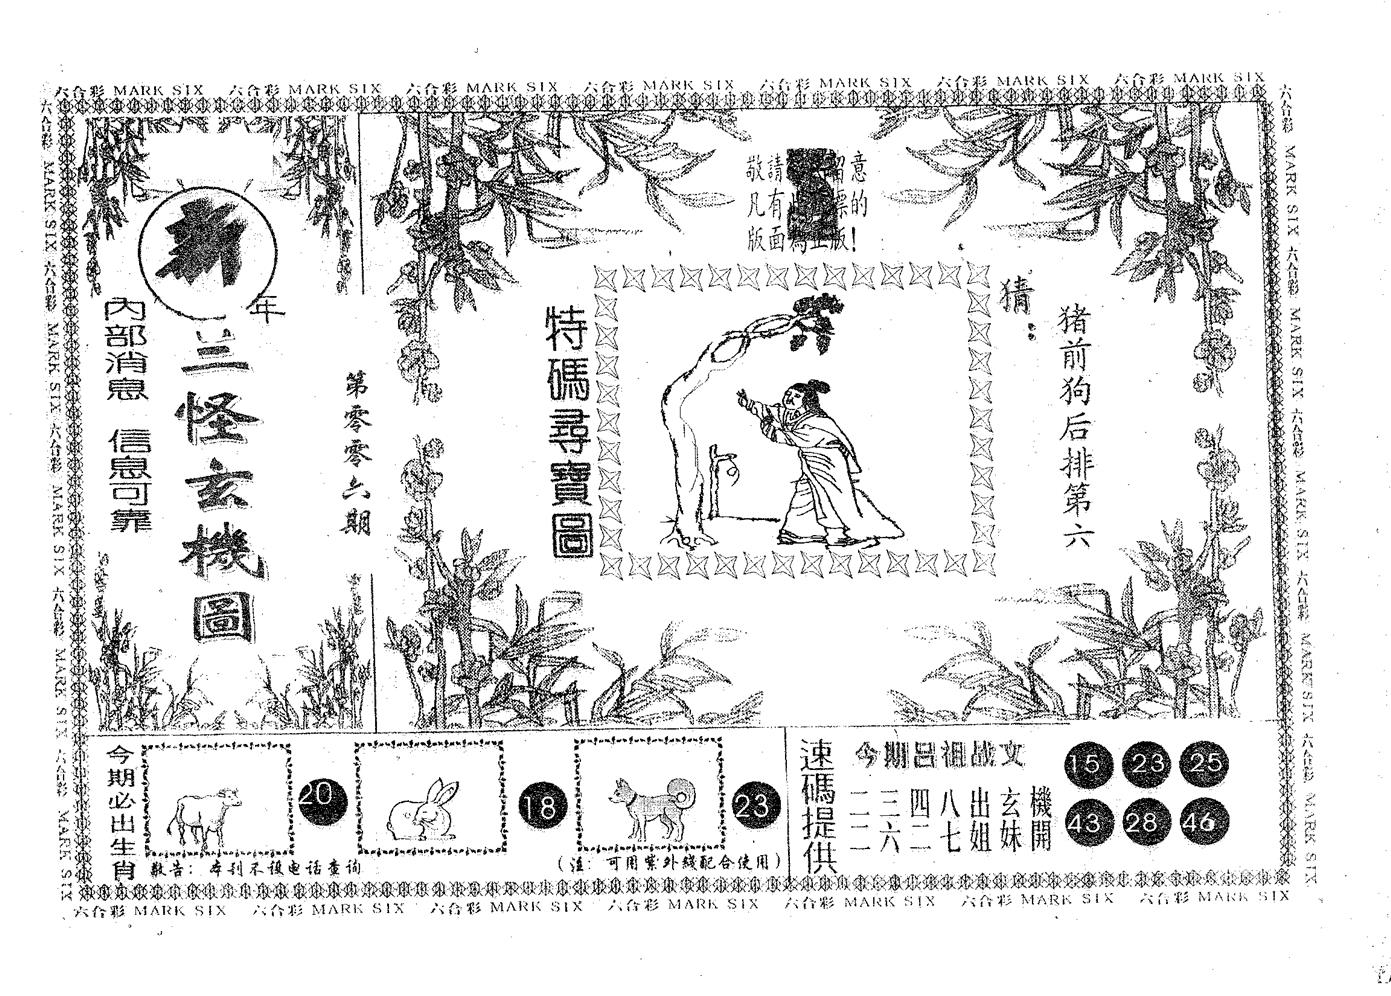 六合彩 MARK SIX 六合彩 MARK SIX 六合彩 MARK SIX 六合彩 MARK SIX 六合彩 MARK SIX 六合彩 MARK SIX 六合彩 MARK SIX
六合彩 MARK SIX 六合彩 MARK SIX 六合彩 MARK SIX 六合彩 MARK SIX 六合彩 MARK SIX
六合彩 MARK SIX 六合彩 MARK SIX 六合彩 MARK SIX 六合彩 MARK SIX 六合彩 MARK SIX
新
年
三怪玄機圖
內部消息 信息可靠
第零零六期
敬請 留意
凡有 標的
版面為正版!
特碼尋寶圖
猜:
猪前狗后排第六
今期必出生肖
20
18
23
敬告:本刊不设电话查询
(注:可用紫外线配合使用)
速碼提供
今期吕祖战文
一三四八出玄機
二六二七姐妹開
15 23 25
43 28 46
六合彩 MARK SIX 六合彩 MARK SIX 六合彩 MARK SIX 六合彩 MARK SIX 六合彩 MARK SIX 六合彩 MARK SIX 六合彩 MARK SIX